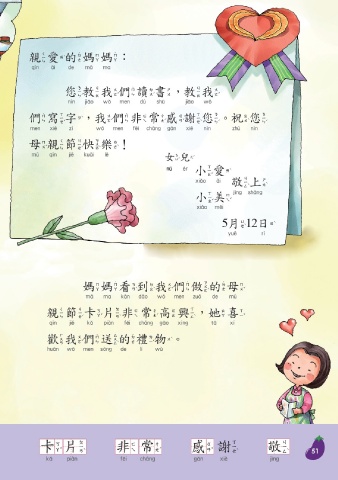 親愛的媽媽：
qīn ài de mā ma
您教我們讀書，教我
nín jiāo wǒ men dú shū jiāo wǒ
們寫字，我們非常感謝您。祝您
men xiě zì wǒ men fēi cháng gǎn xiè nín zhù nín
母親節快樂！
mǔ qīn jié kuài lè
女兒
nǚ ér
小愛
xiǎo ài
敬上
jìng shàng
小美
xiǎo měi
5月12日
yuè rì
媽媽看到我們做的母
mā ma kàn dào wǒ men zuò de mǔ
親節卡片非常高興，她喜
qīn jié kǎ piàn fēi cháng gāo xìng tā xǐ
歡我們送的禮物。
huān wǒ men sòng de lǐ wù
卡片 非常 感謝 敬
kǎ piàn fēi cháng gǎn xiè jìng
51